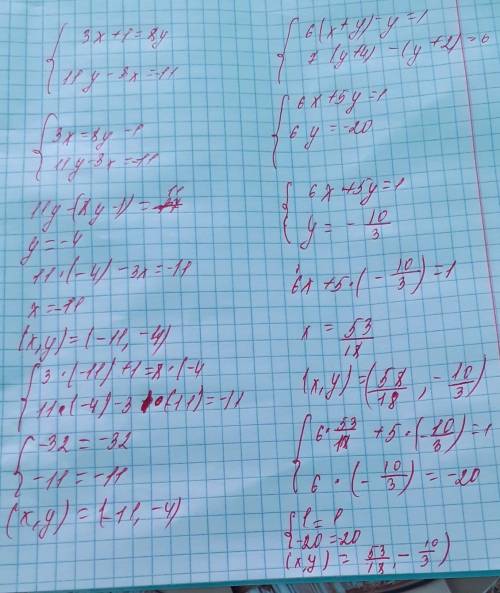 3x+1=8y
11y-8x=-11
3x=8y-1
11y-3x=-11
y=-4
11·(-4)-3x=-11
x=-11
(x,y)=(-11,-4)
3·(-11)+1=8·(-4
11·(-4)-3·(11)=-11
-32=-32
-11=-11
(x,y)=(-11,-4)
6(x+y)-y=1
7(y+4)-(y+2)=6
6x+5y=1
6y=-20
6x+5y=1
y=-10/3
6x+5·(-10/3)=1
x=53/18
(x,y)=(53/18,-10/3)
6·53/18+5·(-10/3)=1
6·(-10/3)=-20
1=1
-20=20
(x,y)=53/18,-10/3)